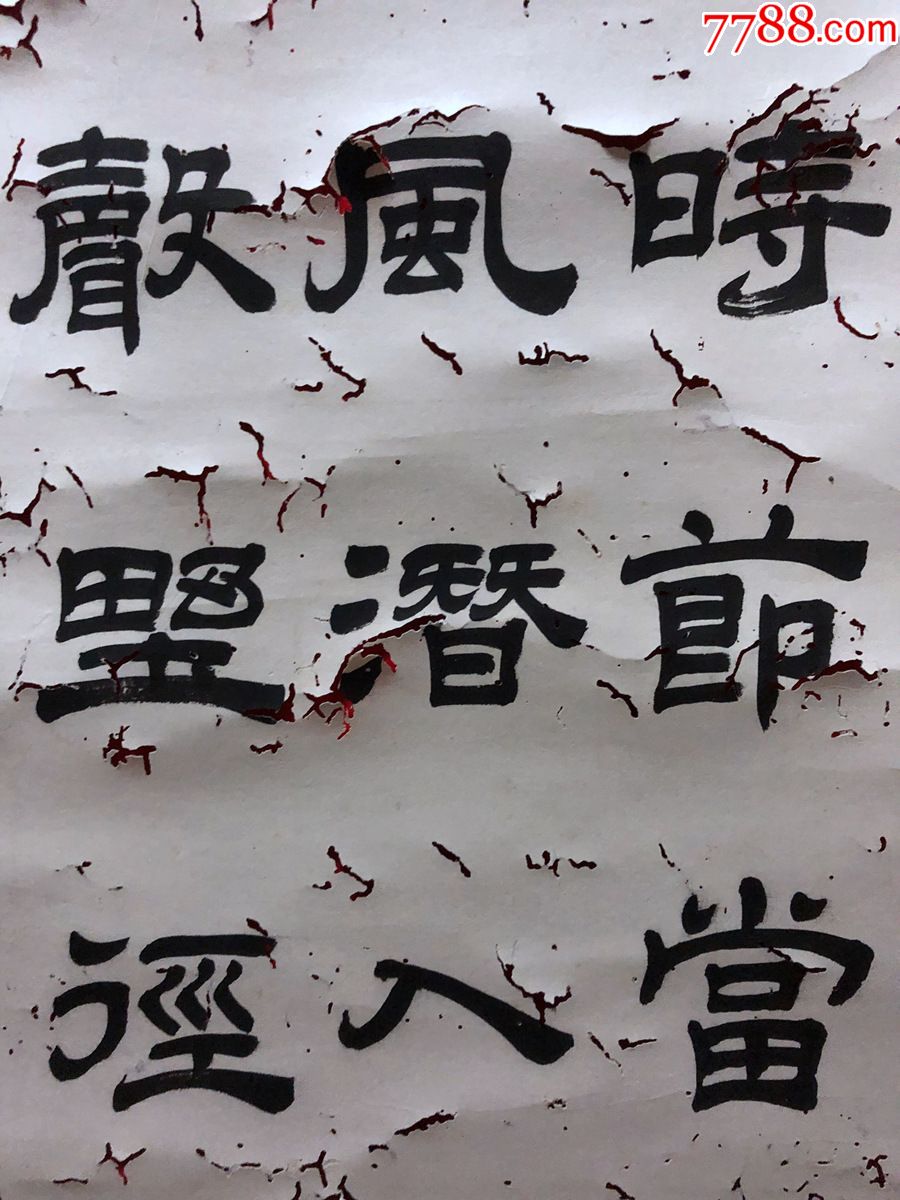 時節當
風潛入
聲墅徑
7788.com